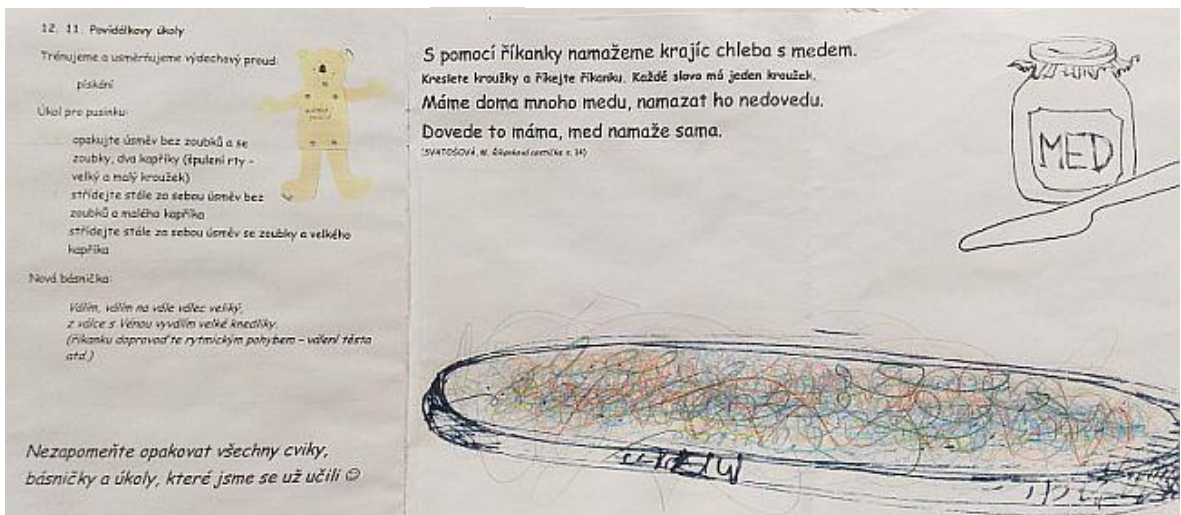 12. 11. Povídálkovy úkoly
Trénujeme a usměrňujeme výdechový proud:
pískání
Úkol pro pusinku:
opakujte úsměv bez zoubků a se
zoubky, dva kapříky (špulení rty –
velký a malý kroužek)
střídejte stále za sebou úsměv bez
zoubků a malého kapříka
střídejte stále za sebou úsměv se zoubky a velkého
kapříka
Nová básnička:
Válím, válím na vále válec veliký,
z válce s Vénou vyválím velké knedlíky.
(říkanku doprovoďte rytmickým pohybem – válení těsta
atd.)
Nezapomeňte opakovat všechny cviky,
básničky a úkoly, které jsme se už učili ☺
S pomocí říkanky namažeme krajíc chleba s medem.
Kreslete kroužky a říkejte říkanku. Každé slovo má jeden kroužek.
Máme doma mnoho medu, namazat ho nedovedu.
Dovede to máma, med namaže sama.
(SVATOŠOVÁ, M.
MED